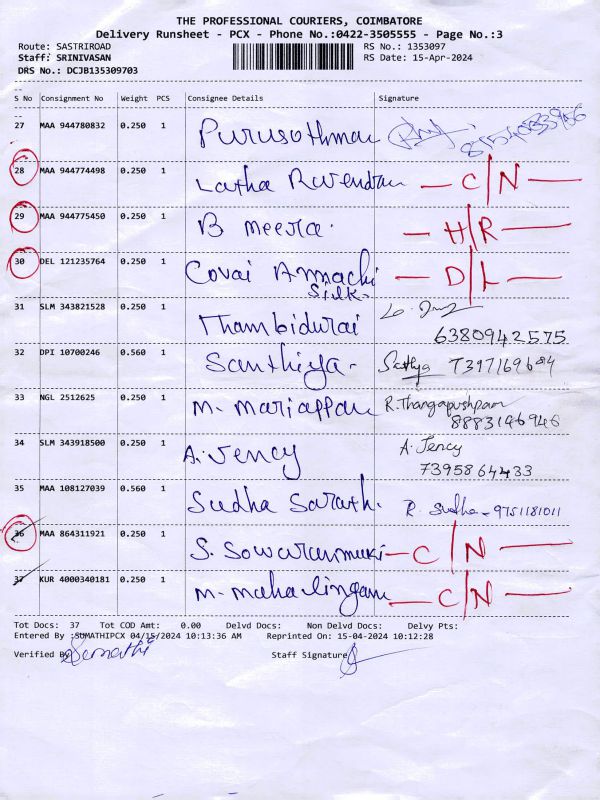 THE PROFESSIONAL COURIERS, COIMBATORE
Delivery Runsheet - PCX - Phone No.:0422-3505555 - Page No.:3
Route: SASTRIROAD RS No.: 1353097
Staff: SRINIVASAN RS Date: 15-Apr-2024
DRS No.: DCJB135309703
S No Consignment No Weight PCS Consignee Details Signature
27 MAA 944780832 0.250 1 Purusothman
28 MAA 944774498 0.250 1 Latha Ravendran - C/N -
29 MAA 944775450 0.250 1 B meera. - H/R -
30 DEL 121235764 0.250 1 Covai Armachi - D/L -
Silk.
31 SLM 343821528 0.250 1 Thambidurai
6380942575
32 DPI 10700246 0.560 1 Santhiya. Sathya 7397169684
33 NGL 2512625 0.250 1 M. Mariappan R. Thangapushpam
8883146946
34 SLM 343918500 0.250 1 A. Jency A. Jency
7395864433
35 MAA 108127039 0.560 1 Sudha Sarath. R. Sudha - 9751181011
36 MAA 864311921 0.250 1 S. Sowaranmuki - C/N -
37 KUR 4000340181 0.250 1 M. Mahalingam - C/N -
Tot Docs: 37 Tot COD Amt: 0.00 Delvd Docs: Non Delvd Docs: Delvy Pts:
Entered By :SUMATHIPCX 04/15/2024 10:13:36 AM Reprinted On: 15-04-2024 10:12:28
Verified By Sumathi Staff Signature